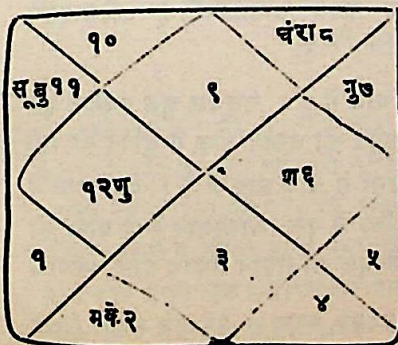 १०
चंरा८
सूबु११
९
गु७
१२शु
श६
१
३
५
मके२
४